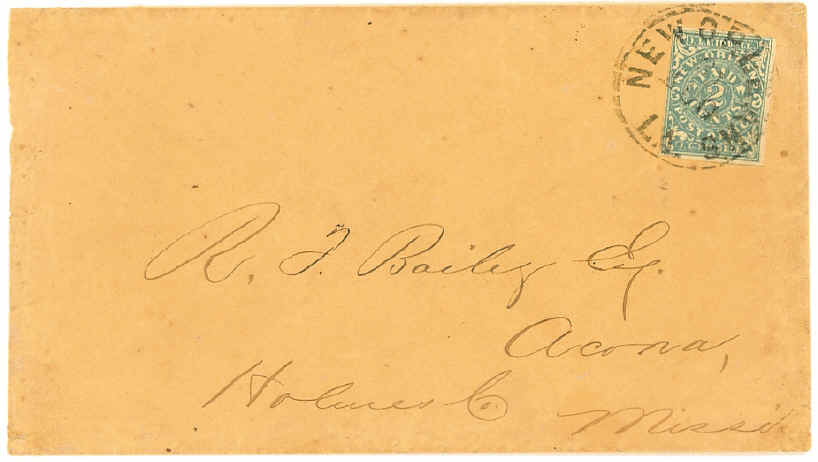 NEW ORLEANS
LA
NEW ORLEANS
PAID
2
POST OFFICE
R. T. Bailey Esq.
Acona,
Holmes Co.
Missi